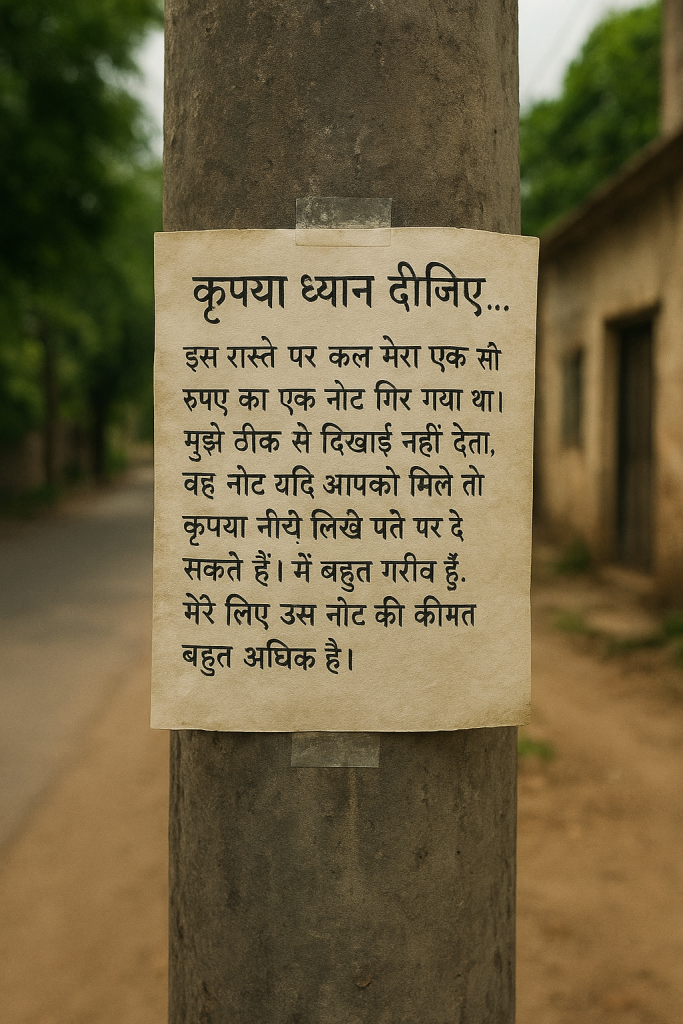 कृपया ध्यान दीजिए...
इस रास्ते पर कल मेरा एक सौ
रुपए का एक नोट गिर गया था।
मुझे ठीक से दिखाई नहीं देता,
वह नोट यदि आपको मिले तो
कृपया नीये लिखे पते पर दे
सकते हैं। में बहुत गरीव हूँ.
मेरे लिए उस नोट की कीमत
बहुत अघिक है।